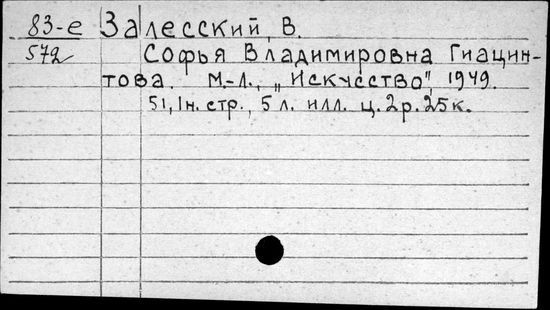 83-е Залесский, В.
572 Софья Владимировна Гиацин-
това. М.-Л., „Искусство", 1949.
51, 1н. стр., 5 л. илл. ц. 2р. 25к.